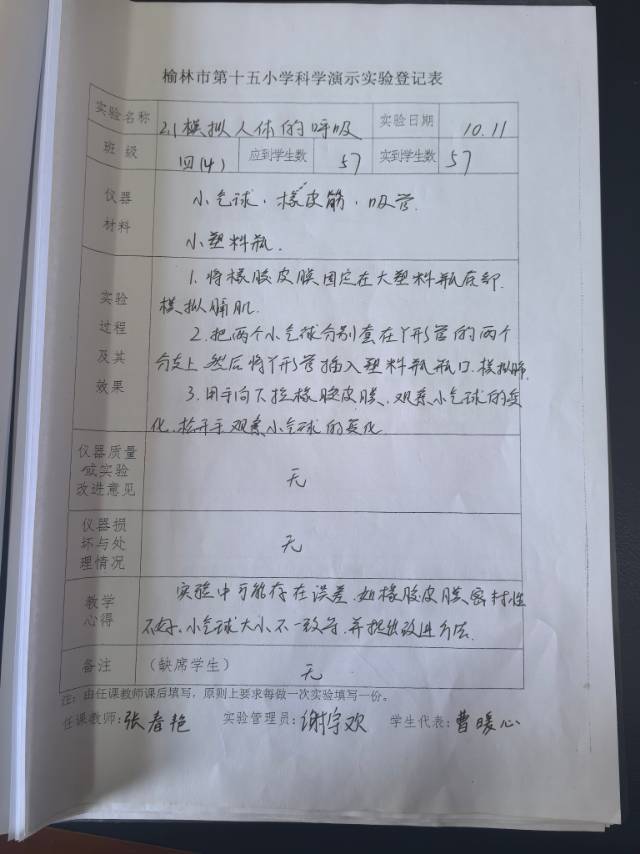 榆林市第十五小学科学演示实验登记表
实验名称 2.1模拟人体的呼吸 实验日期 10.11
班 级 四(4) 应到学生数 57 实到学生数 57
仪器 小气球.橡皮筋.吸管.
材料 小塑料瓶.
1. 将橡胶皮膜固定在大塑料瓶底部.
实验 模拟膈肌.
过程 2. 把两个小气球分别套在Y形管的两个
及其 分支上 然后将Y形管插入塑料瓶瓶口.模拟肺.
效果 3. 用手向下拉橡胶皮膜.观察小气球的变
化.松开手观察小气球的变化.
仪器质量
或实验 无
改进意见
仪器损
坏与处 无
理情况
教学 实验中可能存在误差.如橡胶皮膜密封性
心得 不好.小气球大小不一致等.并提出改进方法.
备注 (缺席学生) 无
注:由任课教师课后填写,原则上要求每做一次实验填写一份。
任课教师:张春艳 实验管理员:谢宇欢 学生代表:曹暖心